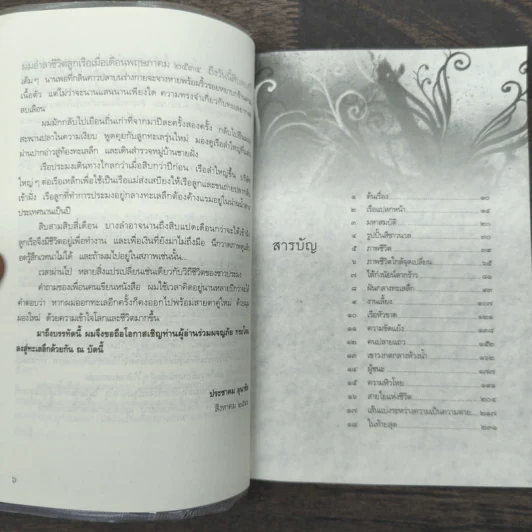 ผมอำลาชีวิตลูกเรือเมื่อเดือนพฤษภาคม ๒๕๓๔ ถึงวันนี้
เต็มๆ นานพอที่กลิ่นคาวปลาบนร่างกายจะจางหายพร้อมริ้วรอย
เนื้อตัว แต่ไม่ว่าจะนานแสนนานเพียงใด ความทรงจำเกี่ยวกับทะเล
ลบเลือน
ผมมักกลับไปเยือนถิ่นเก่าที่จากมาปีละครั้งสองครั้ง กลับไป
สะพานปลาในความเงียบ พูดคุยกับลูกทะเลรุ่นใหม่ มองดูเรือลำใหญ่
ผ่านปากอ่าวสู่ท้องทะเลลึก และเดินสำรวจหมู่บ้านชายฝั่ง
เรือประมงเดินทางไกลกว่าเมื่อสิบกว่าปีก่อน เรือลำใหญ่ขึ้น
ใหญ่ๆ ต่อเรือเหล็กเพื่อใช้เป็นเรือแม่ส่งเสบียงให้เรือลูกและขนถ่ายปลากลับ
เข้าฝั่ง เรือลูกที่ทำการประมงอยู่กลางทะเลลึกต้องค้างแรมอยู่ในน่านน้ำ
ประเทศนานเป็นปี
สิบสามสิบสี่เดือน บางลำอาจนานถึงสิบแปดเดือนกว่าจะได้เข้าฝั่ง
ลูกเรือจึงมีชีวิตอยู่เพื่อทำงาน และเพื่อเงินที่ยังมาไม่ถึงมือ นึกวาดภาพดูแล้ว
อดรู้สึกเวทนาไม่ได้ และถ้าผมไปอยู่ในสภาพเช่นนั้น...
เวลาผ่านไป หลายสิ่งแปรเปลี่ยนเช่นเดียวกับวิถีชีวิตของชาวประมง
คำถามของเพื่อนคนเขียนหนังสือ ผมใช้เวลาคิดอยู่นานหลายปีกว่าจะมี
คำตอบว่า หากผมออกทะเลอีกครั้งก็คงออกไปพร้อมสายตาคู่ใหม่ ด้วยมุม
มองใหม่ ด้วยความเข้าใจโลกและชีวิตมากขึ้น
มาถึงบรรทัดนี้ ผมจึงขอถือโอกาสเชิญท่านผู้อ่านร่วมผจญภัย
ลงสู่ทะเลลึกด้วยกัน ณ บัดนี้
ประชาคม ลุนาชัย
สิงหาคม
๖
สารบัญ
๑ ต้นเรื่อง ๑๐
๒ เรือแปลกหน้า
๓ มหาสมบัติ...
๔ รูปปั้นสีขาวนวล
๕ ภาพชีวิต
๖ ภาพชีวิตใกล้จุดเปลี่ยน ๖๕
๗ ใต้ก่งน้อยน้ำตารั่ว
๘ ฝันกลางทะเลลึก
๙ งานเลี้ยง ๑๐๗
๑๐ เรือหัวขาด
๑๑ ความขัดแย้ง
๑๒ คนปลายแถว ๑๕๒
๑๓ เขาวงกตกลางห้วงน้ำ
๑๔ ผู้ชนะ ๑๗๗
๑๕ ความหิวโหย
๑๖ สายใยแห่งชีวิต ๒๐๔
๑๗ เส้นแบ่งระหว่างความเป็นความตาย... ๒๑๗
๑๘ ในท้ายสุด ๒๓๑